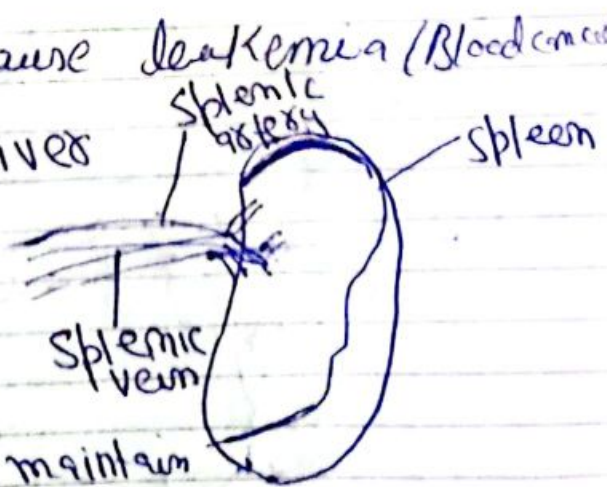 ause leukemia (Bloodcance
splenic
artery
iver
spleen
splenic
vein
maintain